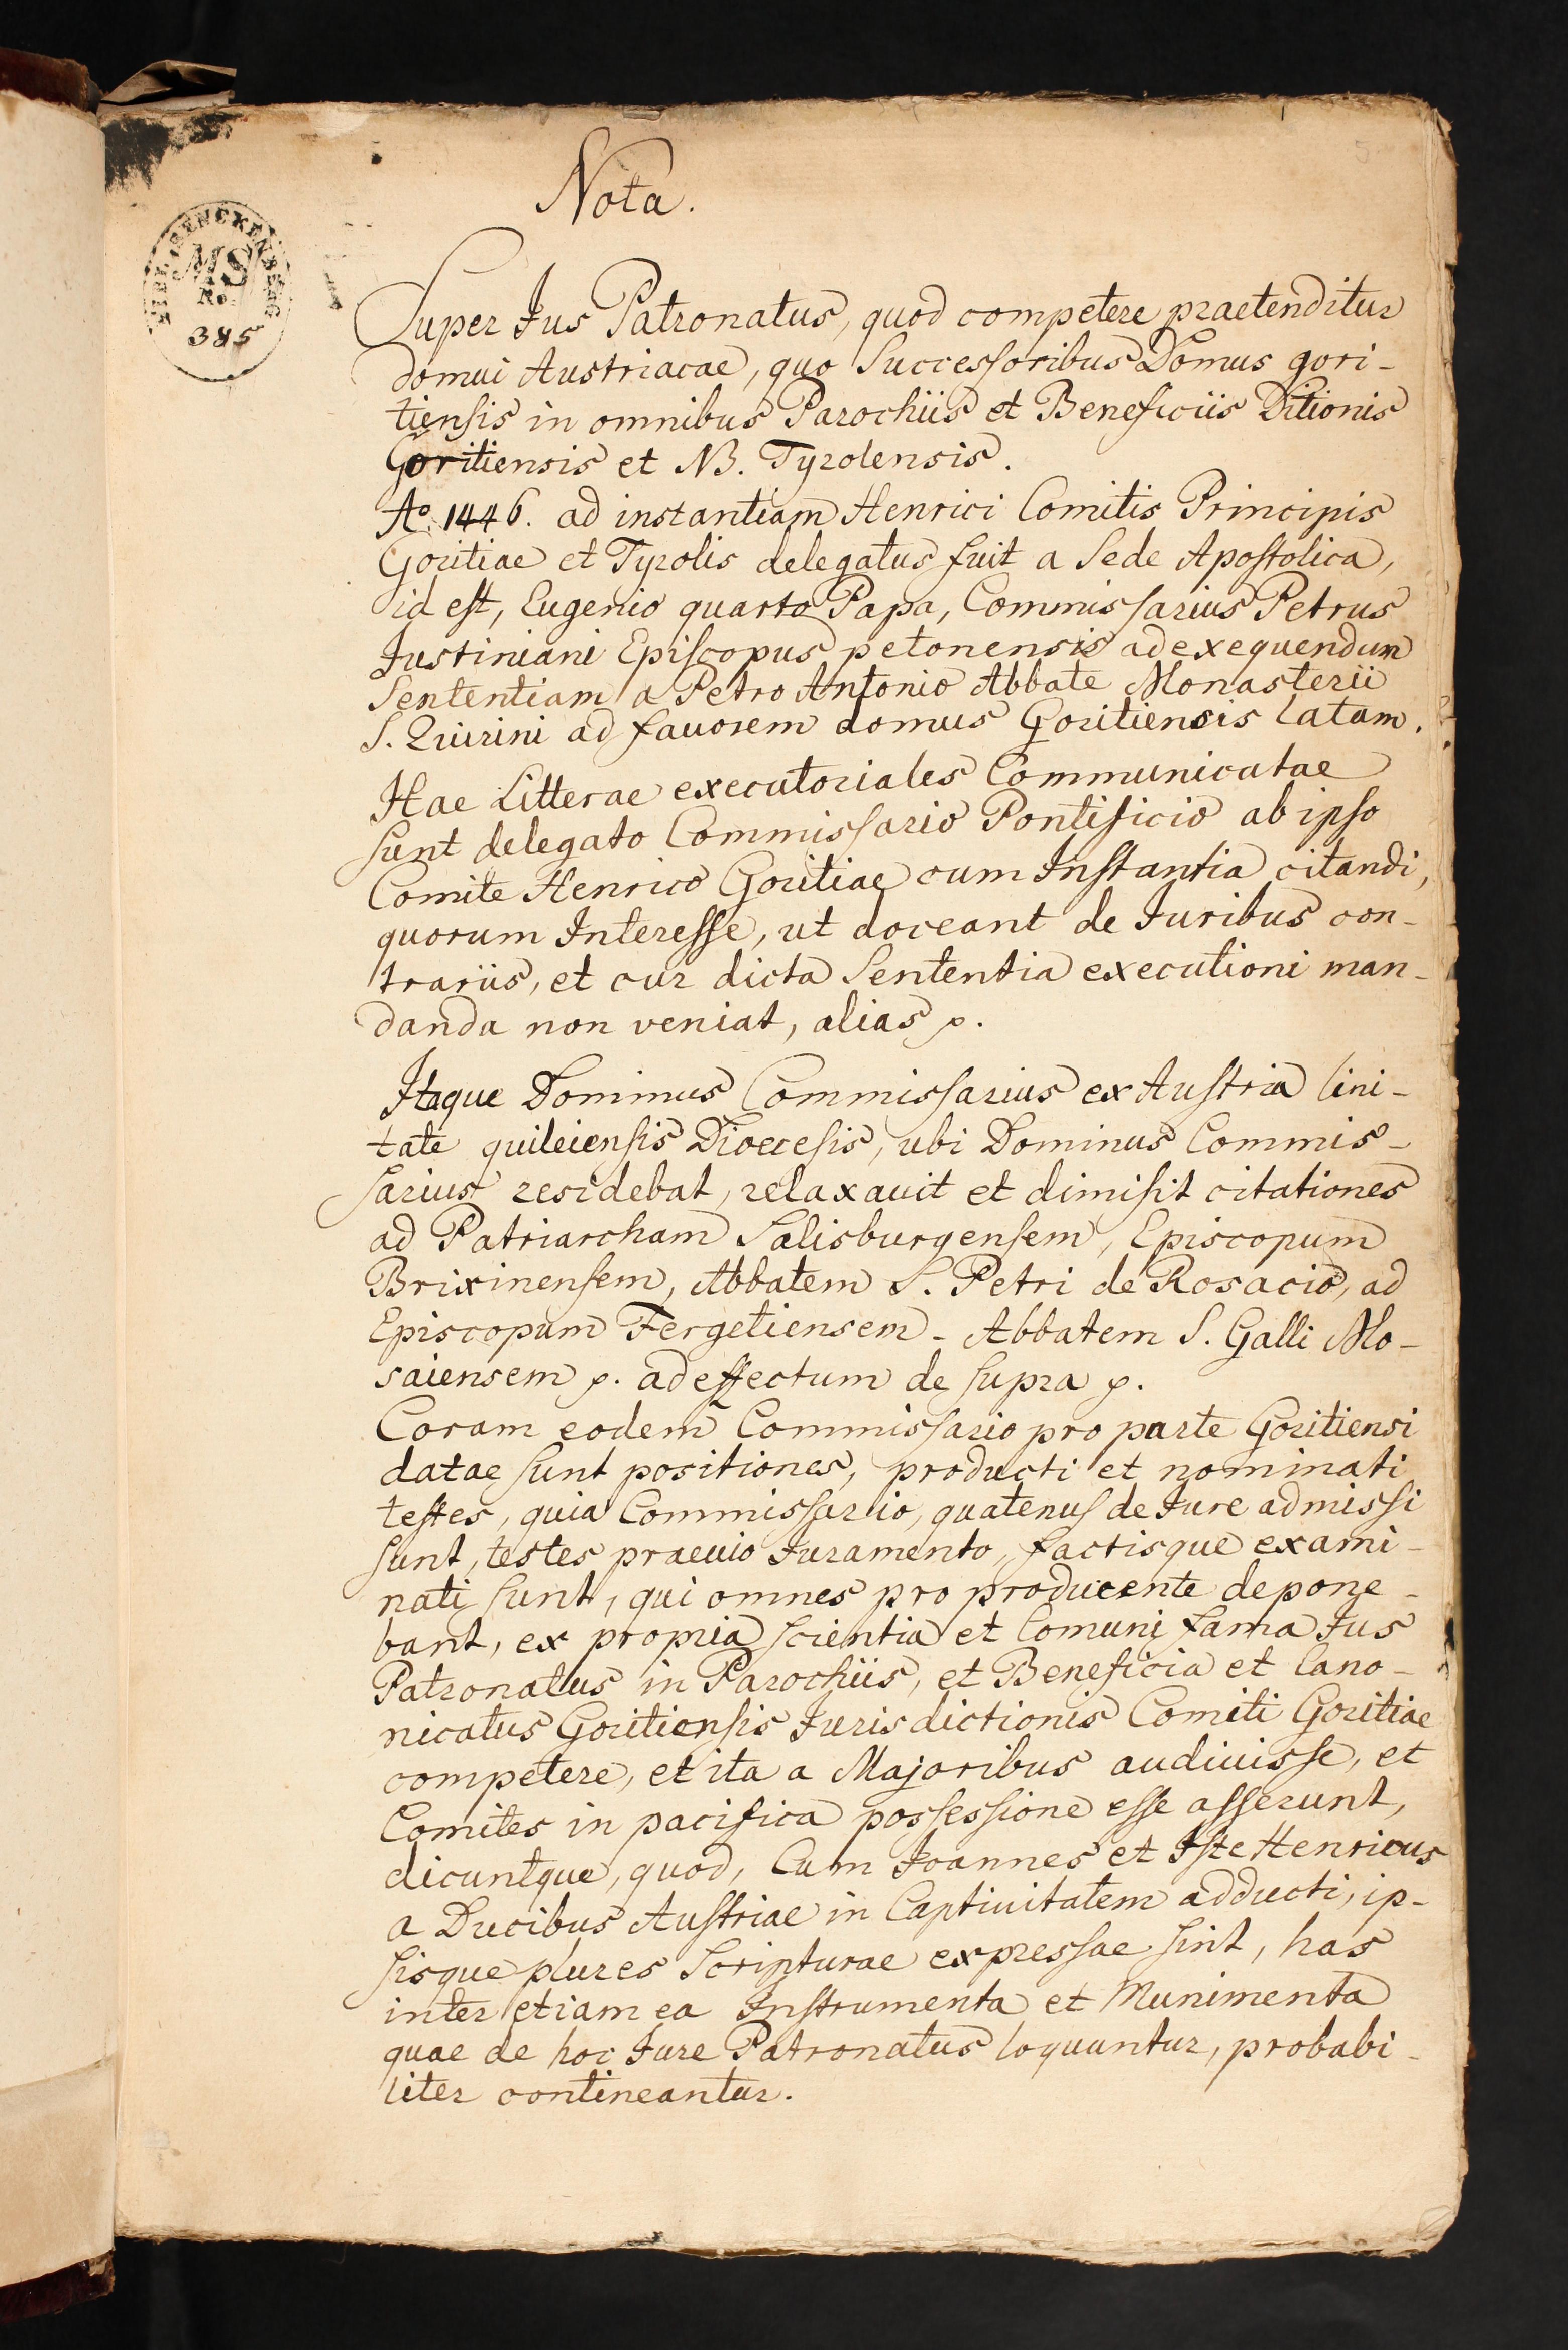 Nota.
BIBL. SENCKENBERG
MS
No.
385
Super Jus Patronatus, quod competere praetenditur
domui Austriacae, quo Successoribus Domus gori-
tiensis in omnibus Parochiis et Beneficiis Ditionis
Goritiensis et NB. Tyrolensis.
Ao. 1446. ad instantiam Henrici Comitis Principis
Goritiae et Tyrolis delegatus fuit a Sede Apostolica,
id est, Eugenio quarto Papa, Commissarius Petrus
Justiniani Episcopus petonensis ad exequendum
Sententiam a Petro Antonio Abbate Monasterii
S. Quirini ad favorem domus Goritiensis latam.
Hae Litterae executoriales Communicatae
sunt delegato Commissario Pontificio ab ipso
Comite Henrico Goritiae cum Instantia citandi,
quorum Interesse, ut doceant de Juribus con-
trariis, et cur dicta Sententia executioni man-
danda non veniat, alias p.
Itaque Dominus Commissarius ex Austria Civi-
tate quileiensis Dioecesis, ubi Dominus Commis-
sarius residebat, relaxauit et dimisit citationes
ad Patriarcham Salisburgensem, Episcopum
Brixinensem, Abbatem S. Petri de Rosacio, ad
Episcopum Fergetiensem - Abbatem S. Galli Mo-
saiensem p. ad effectum de supra p.
Coram eodem Commissario pro parte Goritiensi
datae sunt positiones, producti et nominati
testes, quia Commissario, quatenus de Jure admissi
sunt, testes praeuio Juramento, factisque exami-
nati sunt, qui omnes pro producente depone-
bant, ex propria scientia et Comuni fama Jus
Patronatus in Parochiis, et Beneficia et Cano-
nicatus Goritiensis Jurisdictionis Comiti Goritiae
competere, et ita a Majoribus audiuisse, et
Comites in pacifica possessione esse asserunt,
dicuntque, quod, Cum Joannes et Iste Henricus
a Ducibus Austriae in Captiuitatem adducti, ip-
sisque plures Scripturae expressae sint, has
inter etiam ea Instrumenta et Munimenta
quae de hoc Jure Patronatus loquuntur, probabi-
liter contineantur.